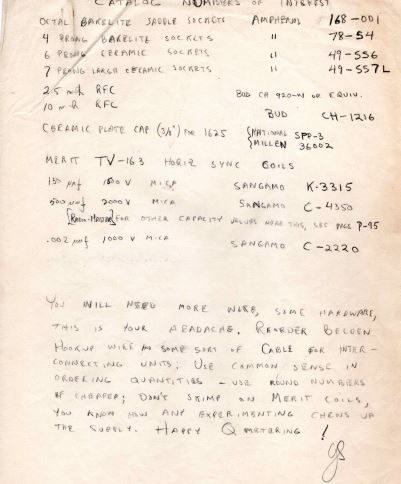 CATALOG NUMBERS OF INTEREST
OCTAL BAKELITE SADDLE SOCKETS AMPHENOL 168-001
4 PRONG BAKELITE SOCKETS " 78-S4
6 PRONG CERAMIC SOCKETS " 49-SS6
7 PRONG LARGE CERAMIC SOCKETS " 49-SS7L
2.5 mh RFC BUD CH 920-W OR EQUIV.
10 mh RFC BUD CH-1216
CERAMIC PLATE CAP (3/8") FOR 1625 {NATIONAL SPP-3
MILLEN 36002
MERIT TV-163 HORIZ SYNC COILS
150 µµf V MICA SANGAMO K-3315
500 µµf 2000 V MICA SANGAMO C-4350
[RADIO-MASTER] FOR OTHER CAPACITY VALUES NEAR THIS, SEE PAGE P-95
.002 µf 1000 V MICA SANGAMO C-2220
YOU WILL NEED MORE WIRE, SOME HARDWARE,
THIS IS YOUR HEADACHE. REORDER BELDEN
HOOKUP WIRE SOME SORT OF CABLE FOR INTER-
CONNECTING UNITS. USE COMMON SENSE IN
ORDERING QUANTITIES - USE ROUND NUMBERS
IF CHEAPER; DON'T SKIMP ON MERIT COILS,
YOU KNOW HOW ANY EXPERIMENTING CHEWS UP
THE SUPPLY. HAPPY Q METERING!